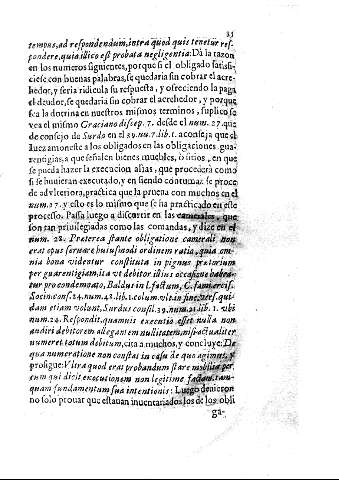 25
tempus, ad respondendum, intra quod quis tenetur res-
pondere, quia illico est probata negligentia: Dà la razon
en los numeros siguientes, porque si el obligado satisfi-
ciese con buenas palabras, se quedaria sin cobrar el acre-
hedor, y seria ridicula su respuesta, y ofreciendo la paga
el deudor, se quedaria sin cobrar el acrehedor, y porque
sea la doctrina en nuestros mismos terminos, suplico se
vea el mismo Graciano discep. 7. desde el num. 27. que
de consejo de Surdo en el 39. nu. 7. lib. 1. aconseja que el
Iuez amoneste a los obligados en las obligaciones gua-
rentigias, a que señalen bienes muebles, ò sitios, en que
se pueda hazer la execucion alias, que procederà como
si se huvieran executado, y en siendo contumaz se proce-
de adulteriora, practica que la prueva con muchos en el
num. 27. y esto es lo mismo que se ha practicado en este
processo. Passa luego a discurrir en las camerales, que
son tan privilegiadas como las comandas, y dize en el
num. 22. Præterea stante obligatione camerali, non
erat opus servare huiusmodi ordinem ratio, quia om-
nia bona videntur constituta in pignus prætorium
per guarentigiam, ita vt debitor illius occasione habea-
tur pro condemnato, Baldus in l. factum, C. famil. ercis.
Socin. cons. 24. num. 43. lib. 1. colum. vlt. in fine, vers. qui-
dam etiam volunt, Surdus consil. 39. num. 21. lib. 1. vbi
num. 24. Respondit, quamvis executio esset nulla non
audiri debitorem allegantem nullitatem, nisi actualiter
numeret totum debitum, cita a muchos, y concluye: De
qua numeratione non constat in casu de quo agimus, y
prosigue: Vltra quod erat probandum
cum qui dicit executionem non legitime factam, tan-
quam fundamentum sua intentionis: Luego devieron
no solo provar que estavan inventariados los de los obli
ga-